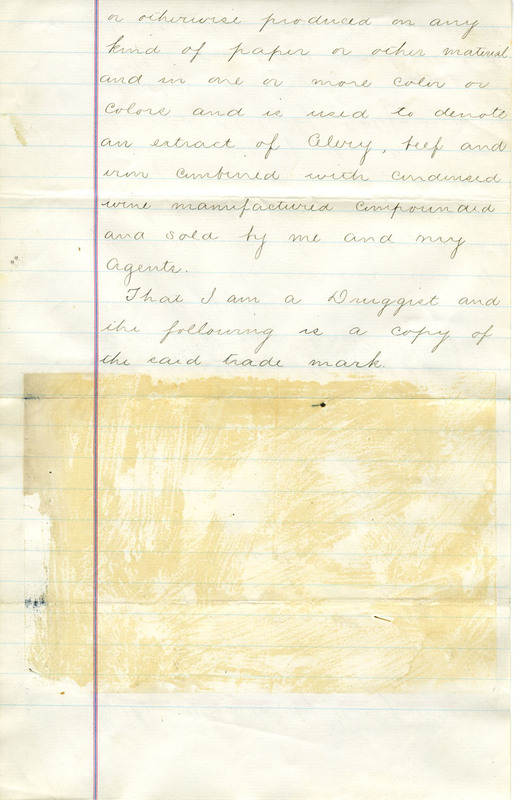 or otherwise produced on any
kind of paper or other material
and in one or more color or
colors and is used to denote
an extract of Celery, beef and
iron combined with condensed
wine manufactured compounded
and sold by me and my
Agents.
That I am a Druggist and
the following is a copy of
the said trade mark.